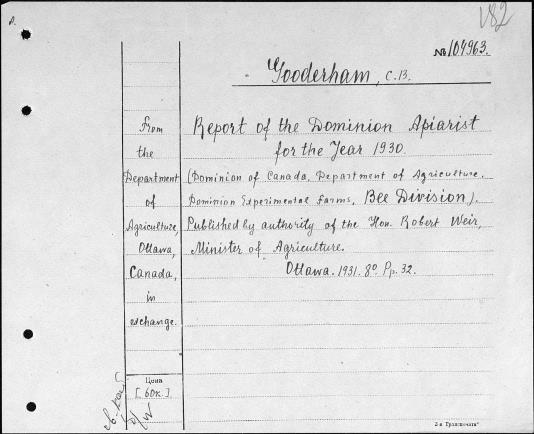 182
№ 104963.
Gooderham, C.B.
From
the
Department
of
Agriculture,
Ottawa,
Canada,
in
exchange.
Report of the Dominion Apiarist
for the Year 1930.
(Dominion of Canada, Department of Agriculture.
Dominion Experimental farms, Bee Division).
Published by authority of the Hon. Robert Weir,
Minister of Agriculture.
Ottawa. 1931. 8º Pp. 32.
Цена
[60к.]